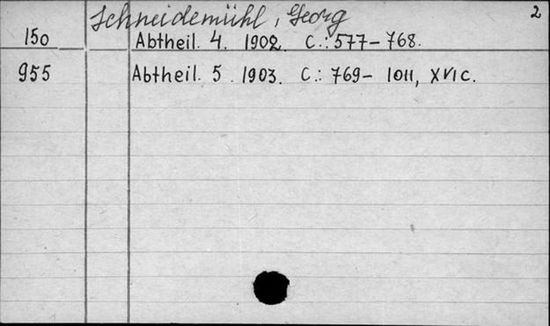 Schneidemühl, Georg 2
150 Abtheil. 4. 1902. C.: 577-768.
955 Abtheil. 5. 1903. C.: 769- 1011, XVI C.